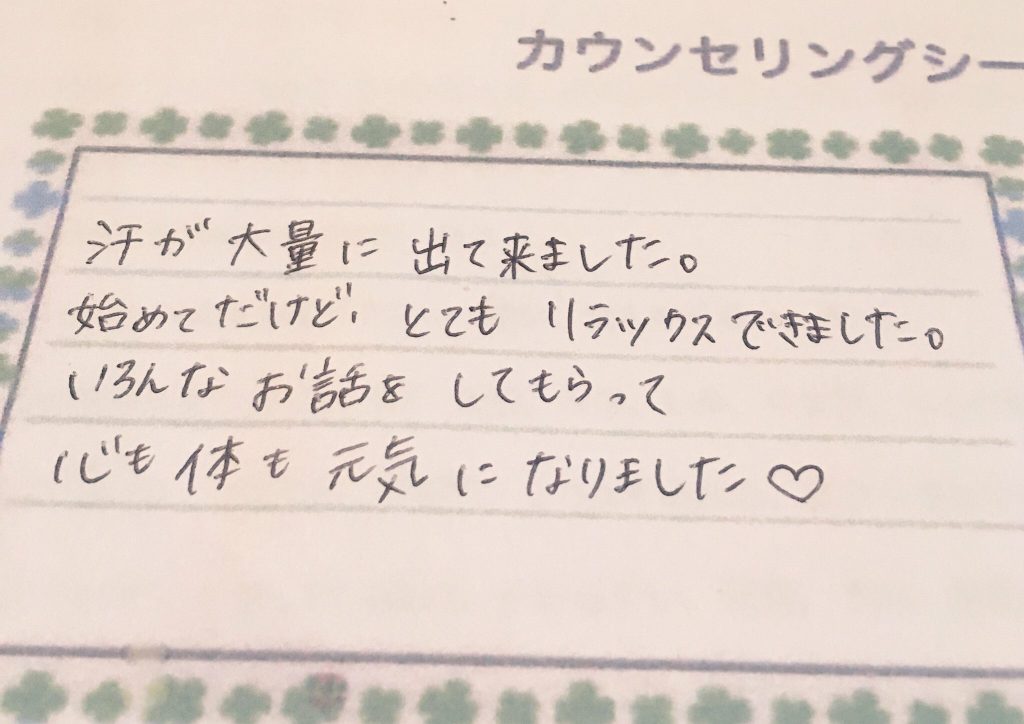 カウンセリングシー
汗が大量に出て来ました。
始めてだけど、とてもリラックスできました。
いろんなお話をしてもらって
心も体も元気になりました♡